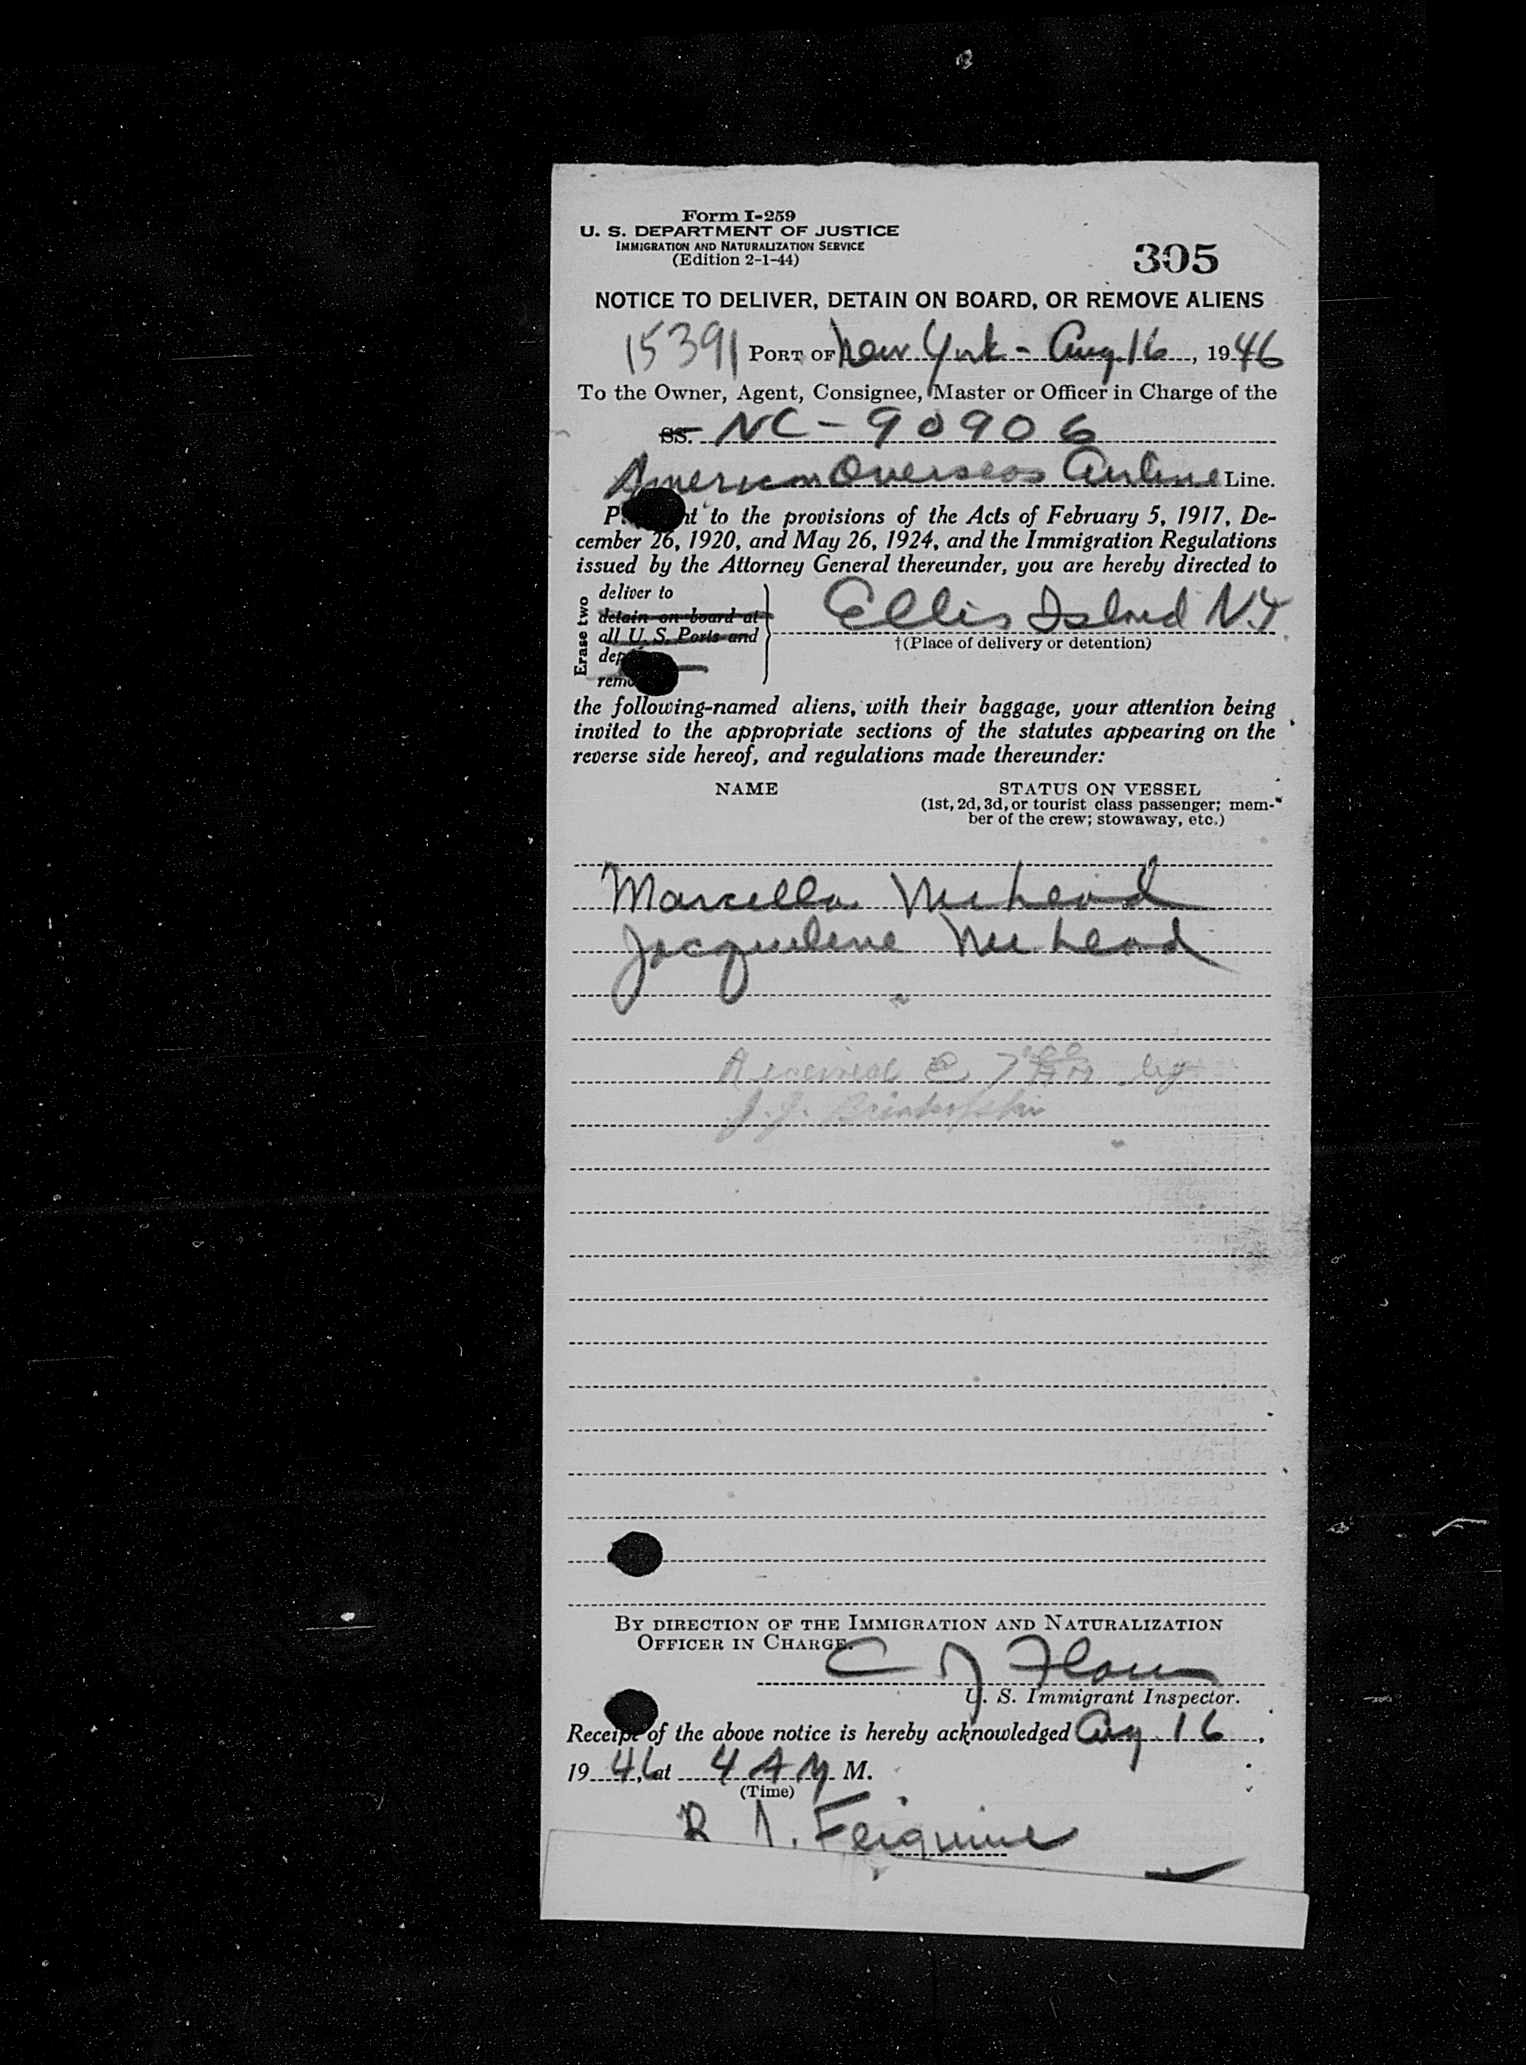 Form I-259
U. S. DEPARTMENT OF JUSTICE
IMMIGRATION AND NATURALIZATION SERVICE
(Edition 2-1-44)
305
NOTICE TO DELIVER, DETAIN ON BOARD, OR REMOVE ALIENS
15391 PORT OF New York - Aug. 16, 1946
To the Owner, Agent, Consignee, Master or Officer in Charge of the
SS. NC-90906
American Overseas Airline Line.
to the provisions of the Acts of February 5, 1917, De-
cember 26, 1920, and May 26, 1924, and the Immigration Regulations
issued by the Attorney General thereunder, you are hereby directed to
Erase two
deliver to
detain on board at
all U. S. Ports and
Ellis Island N.Y.
†(Place of delivery or detention)
the following-named aliens, with their baggage, your attention being
invited to the appropriate sections of the statutes appearing on the
reverse side hereof, and regulations made thereunder:
NAME STATUS ON VESSEL
(1st, 2d, 3d, or tourist class passenger; mem-
ber of the crew; stowaway, etc.)
Marcella
Jacqueline
Received @ 7:00 by
J. J.
BY DIRECTION OF THE IMMIGRATION AND NATURALIZATION
OFFICER IN CHARGE.
C J
U. S. Immigrant Inspector.
Receipt of the above notice is hereby acknowledged Aug. 16,
1946, at 4 A M M.
(Time)
R